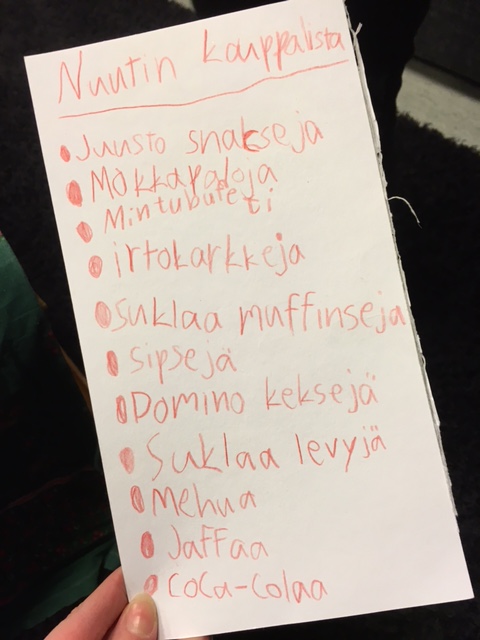 Nuutin kauppalista
Juusto snakseja
Mokkapaloja
Mintubuteti
irtokarkkeja
Suklaa muffinseja
sipsejä
Domino keksejä
Suklaa levyjä
Mehua
Jaffaa
Coca-Colaa